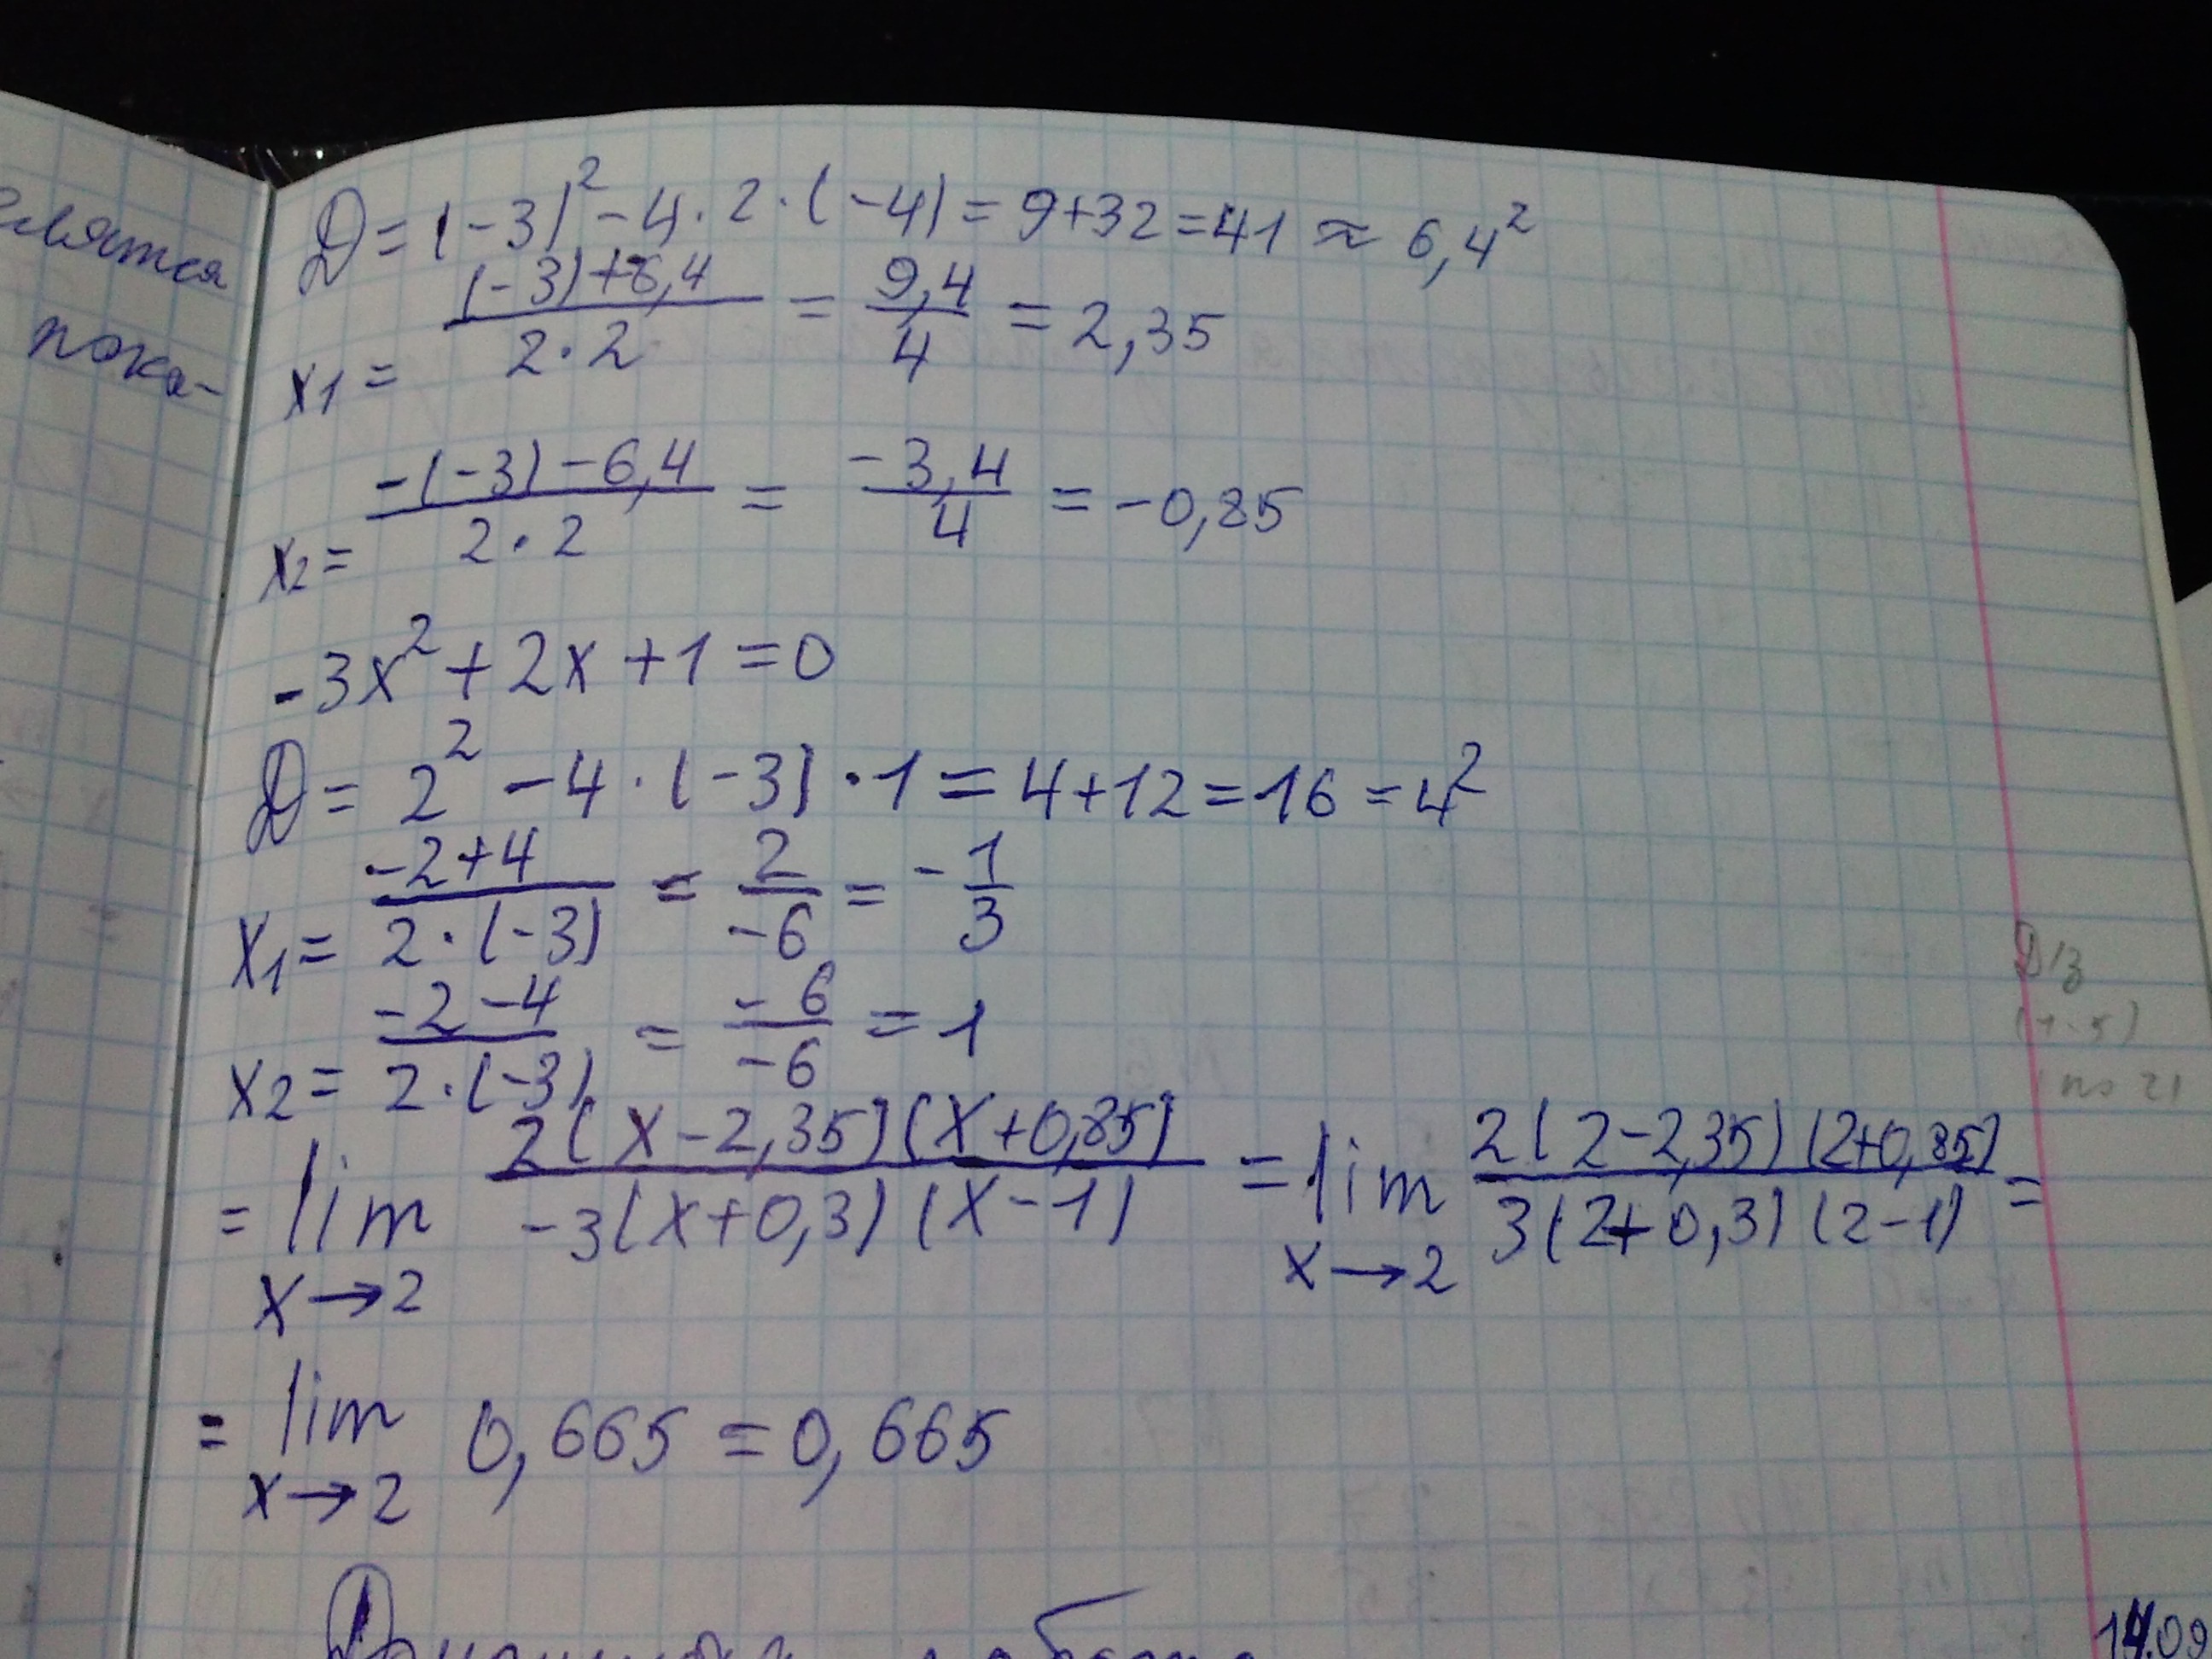 вляются
пока-
D = (-3)² - 4 · 2 · (-4) = 9 + 32 = 41 ≈ 6,4²
x1 = \frac{(-3)+6,4}{2·2} = \frac{9,4}{4} = 2,35
x2 = \frac{-(-3)-6,4}{2·2} = \frac{-3,4}{4} = -0,85
-3x² + 2x + 1 = 0
D = 2² - 4 · (-3) · 1 = 4 + 12 = 16 = 4²
x1 = \frac{-2+4}{2·(-3)} = \frac{2}{-6} = -\frac{1}{3}
x2 = \frac{-2-4}{2·(-3)} = \frac{-6}{-6} = 1
= lim x→2 \frac{2(x-2,35)(x+0,85)}{-3(x+0,3)(x-1)} = lim x→2 \frac{2(2-2,35)(2+0,85)}{3(2+0,3)(2-1)} =
= lim x→2 0,665 = 0,665
Д/з
Домашняя работа
14.09